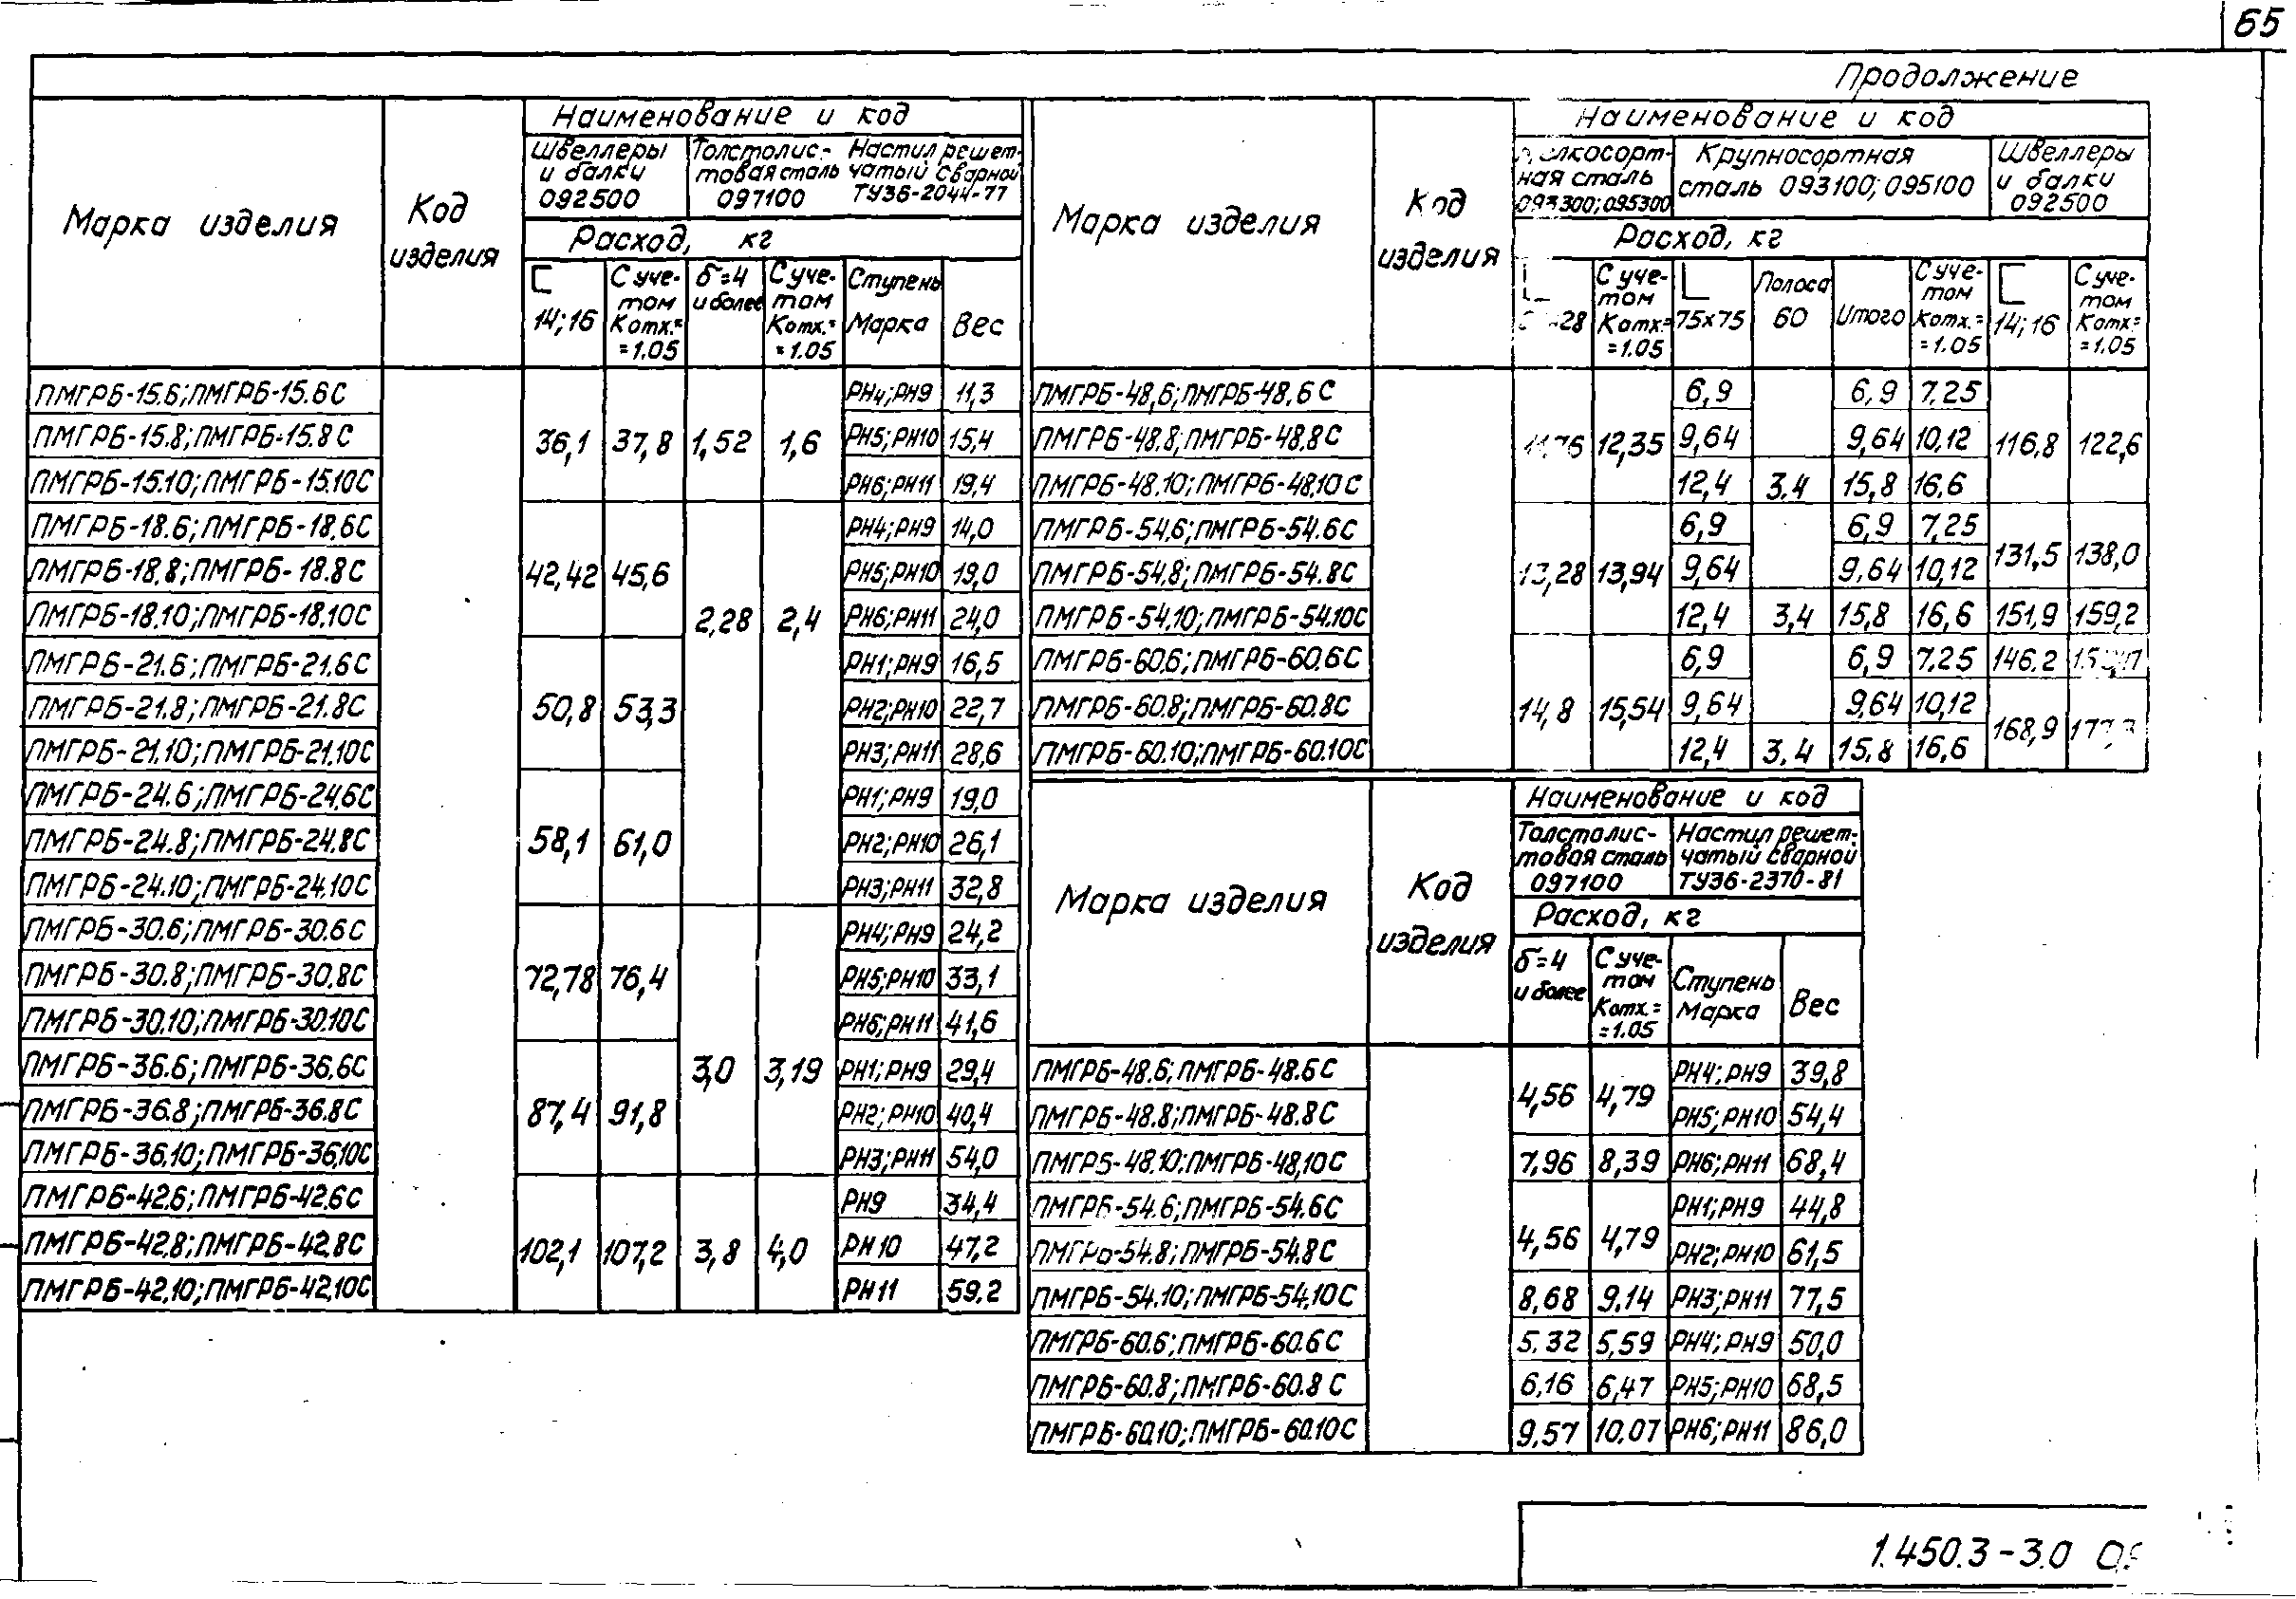 65
Продолжение
Марка изделия
Код изделия
Наименование и код
Швеллеры и балки 092500
Толстолис-товая сталь 097100
Настил решет-чатый сварной ТУ36-2044-77
Расход, кг
[ 14; 16
С уче-том Котх.= =1.05
б=4 и более
С уче-том Котх.= =1.05
Ступень Марка
Вес
ПМГРБ-15.6; ПМГРБ-15.6С РН4; РН9 11,3
ПМГРБ-15.8; ПМГРБ-15.8С 36,1 37,8 1,52 1,6 РН5; РН10 15,4
ПМГРБ-15.10; ПМГРБ-15.10С РН6; РН11 19,4
ПМГРБ-18.6; ПМГРБ-18.6С РН4; РН9 14,0
ПМГРБ-18.8; ПМГРБ-18.8С 42,42 45,6 РН5; РН10 19,0
ПМГРБ-18.10; ПМГРБ-18.10С 2,28 2,4 РН6; РН11 24,0
ПМГРБ-21.6; ПМГРБ-21.6С РН1; РН9 16,5
ПМГРБ-21.8; ПМГРБ-21.8С 50,8 53,3 РН2; РН10 22,7
ПМГРБ-21.10; ПМГРБ-21.10С РН3; РН11 28,6
ПМГРБ-24.6; ПМГРБ-24.6С РН1; РН9 19,0
ПМГРБ-24.8; ПМГРБ-24.8С 58,1 61,0 РН2; РН10 26,1
ПМГРБ-24.10; ПМГРБ-24.10С РН3; РН11 32,8
ПМГРБ-30.6; ПМГРБ-30.6С РН4; РН9 24,2
ПМГРБ-30.8; ПМГРБ-30.8С 72,78 76,4 РН5; РН10 33,1
ПМГРБ-30.10; ПМГРБ-30.10С РН6; РН11 41,6
ПМГРБ-36.6; ПМГРБ-36.6С 3,0 3,19 РН1; РН9 29,4
ПМГРБ-36.8; ПМГРБ-36.8С 87,4 91,8 РН2; РН10 40,4
ПМГРБ-36.10; ПМГРБ-36.10С РН3; РН11 54,0
ПМГРБ-42.6; ПМГРБ-42.6С РН9 34,4
ПМГРБ-42.8; ПМГРБ-42.8С 102,1 107,2 3,8 4,0 РН10 47,2
ПМГРБ-42.10; ПМГРБ-42.10С РН11 59,2
Марка изделия
Код изделия
Наименование и код
ная сталь 095300
Крупносортная сталь 093100; 095100
Швеллеры и балки 092500
Расход, кг
С уче-том Котх.= =1.05
∟ 75х75
Полоса 60
Итого
С уче-том Котх.= =1.05
[ 14; 16
С уче-том Котх.= =1.05
ПМГРБ-48.6; ПМГРБ-48.6С 6,9 6,9 7,25
ПМГРБ-48.8; ПМГРБ-48.8С 12,35 9,64 9,64 10,12 116,8 122,6
ПМГРБ-48.10; ПМГРБ-48.10С 12,4 3,4 15,8 16,6
ПМГРБ-54.6; ПМГРБ-54.6С 6,9 6,9 7,25
ПМГРБ-54.8; ПМГРБ-54.8С 13,28 13,94 9,64 9,64 10,12 131,5 138,0
ПМГРБ-54.10; ПМГРБ-54.10С 12,4 3,4 15,8 16,6 151,9 159,2
ПМГРБ-60.6; ПМГРБ-60.6С 6,9 6,9 7,25 146.2
ПМГРБ-60.8; ПМГРБ-60.8С 14,8 15,54 9,64 9,64 10,12 168,9
ПМГРБ-60.10; ПМГРБ-60.10С 12,4 3,4 15,8 16,6
Марка изделия
Код изделия
Наименование и код
Толстолис-товая сталь 097100
Настил решет-чатый сварной ТУ36-2370-81
Расход, кг
б=4 и более
С уче-том Котх.= =1.05
Ступень Марка
Вес
ПМГРБ-48.6; ПМГРБ-48.6С 4,56 4,79 РН4; РН9 39,8
ПМГРБ-48.8; ПМГРБ-48.8С РН5; РН10 54,4
ПМГРБ-48.10; ПМГРБ-48.10С 7,96 8,39 РН6; РН11 68,4
ПМГРБ-54.6; ПМГРБ-54.6С 4,56 4,79 РН1; РН9 44,8
ПМГРБ-54.8; ПМГРБ-54.8С РН2; РН10 61,5
ПМГРБ-54.10; ПМГРБ-54.10С 8,68 9,14 РН3; РН11 77,5
ПМГРБ-60.6; ПМГРБ-60.6С 5.32 5,59 РН4; РН9 50,0
ПМГРБ-60.8; ПМГРБ-60.8С 6,16 6,47 РН5; РН10 68,5
ПМГРБ-60.10; ПМГРБ-60.10С 9,57 10.07 РН6; РН11 86,0
1.450.3-3.0